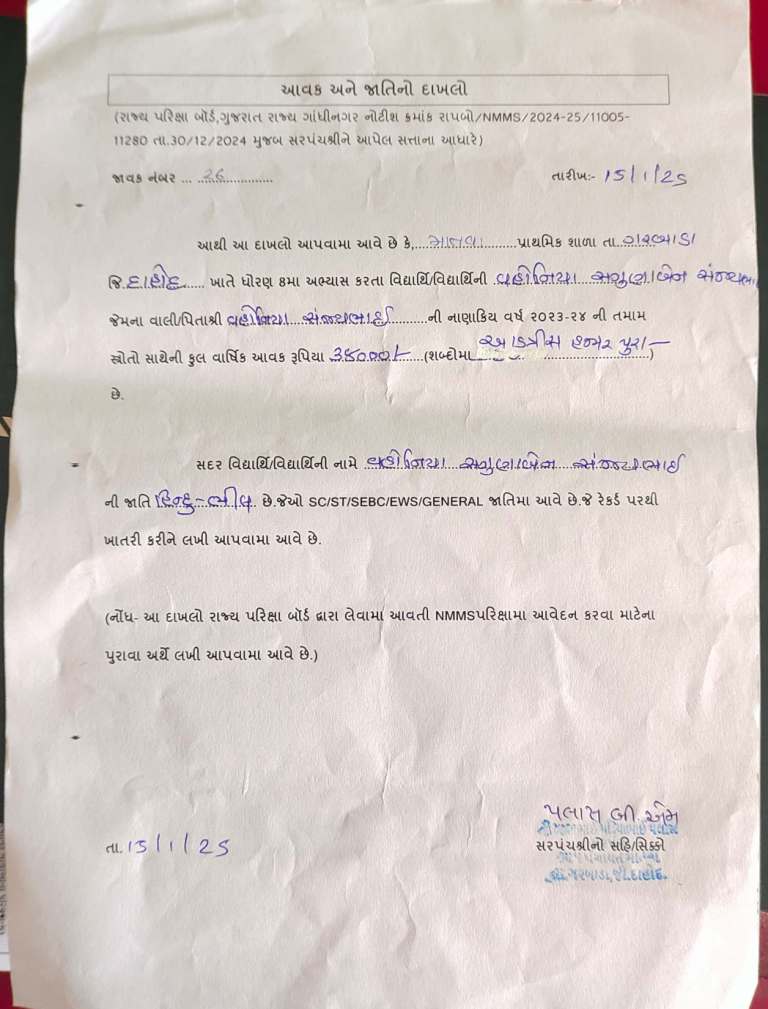 આવક અને જાતિનો દાખલો
(રાજ્ય પરિક્ષા બોર્ડ,ગુજરાત રાજ્ય ગાંધીનગર નોટીશ ક્રમાંક રાપબો/NMMS/2024-25/11005-
11280 તા.30/12/2024 મુજબ સરપંચશ્રીને આપેલ સત્તાના આધારે)
જાવક નંબર ... ..26.............. તારીખ:- 15/1/25
આથી આ દાખલો આપવામા આવે છે કે,.............પ્રાથમિક શાળા તા..ગરબાડા
જિ.દાહોદ..... ખાતે ધોરણ 8મા અભ્યાસ કરતા વિદ્યાર્થિ/વિદ્યાર્થિની .વહોનિયા
જેમના વાલી/પિતાશ્રી વહોનિયા...સંજયભાઈ.........ની નાણાકિય વર્ષ ૨૦૨૩-૨૪ ની તમામ
સ્ત્રોતો સાથેની કુલ વાર્ષિક આવક રૂપિયા .38000/-....(શબ્દોમા...આડત્રીસ હજાર પુરા-...)
છે.
સદર વિદ્યાર્થિ/વિદ્યાર્થિની નામે .વહોનિયા...સંજયભાઈ
ની જાતિ હિન્દુ-ભીલ. છે.જેઓ SC/ST/SEBC/EWS/GENERAL જાતિમા આવે છે.જે રેકર્ડ પરથી
ખાતરી કરીને લખી આપવામા આવે છે.
(નોંધ- આ દાખલો રાજ્ય પરિક્ષા બોર્ડ દ્વારા લેવામાં આવતી NMMSપરિક્ષામા આવેદન કરવા માટેના
પુરાવા અર્થે લખી આપવામા આવે છે.)
પલાસ બી. એમ
તા.15/1/25 સરપંચશ્રીનો સહિ/સિક્કો
ગરબાડા,જી.દાહોદ.